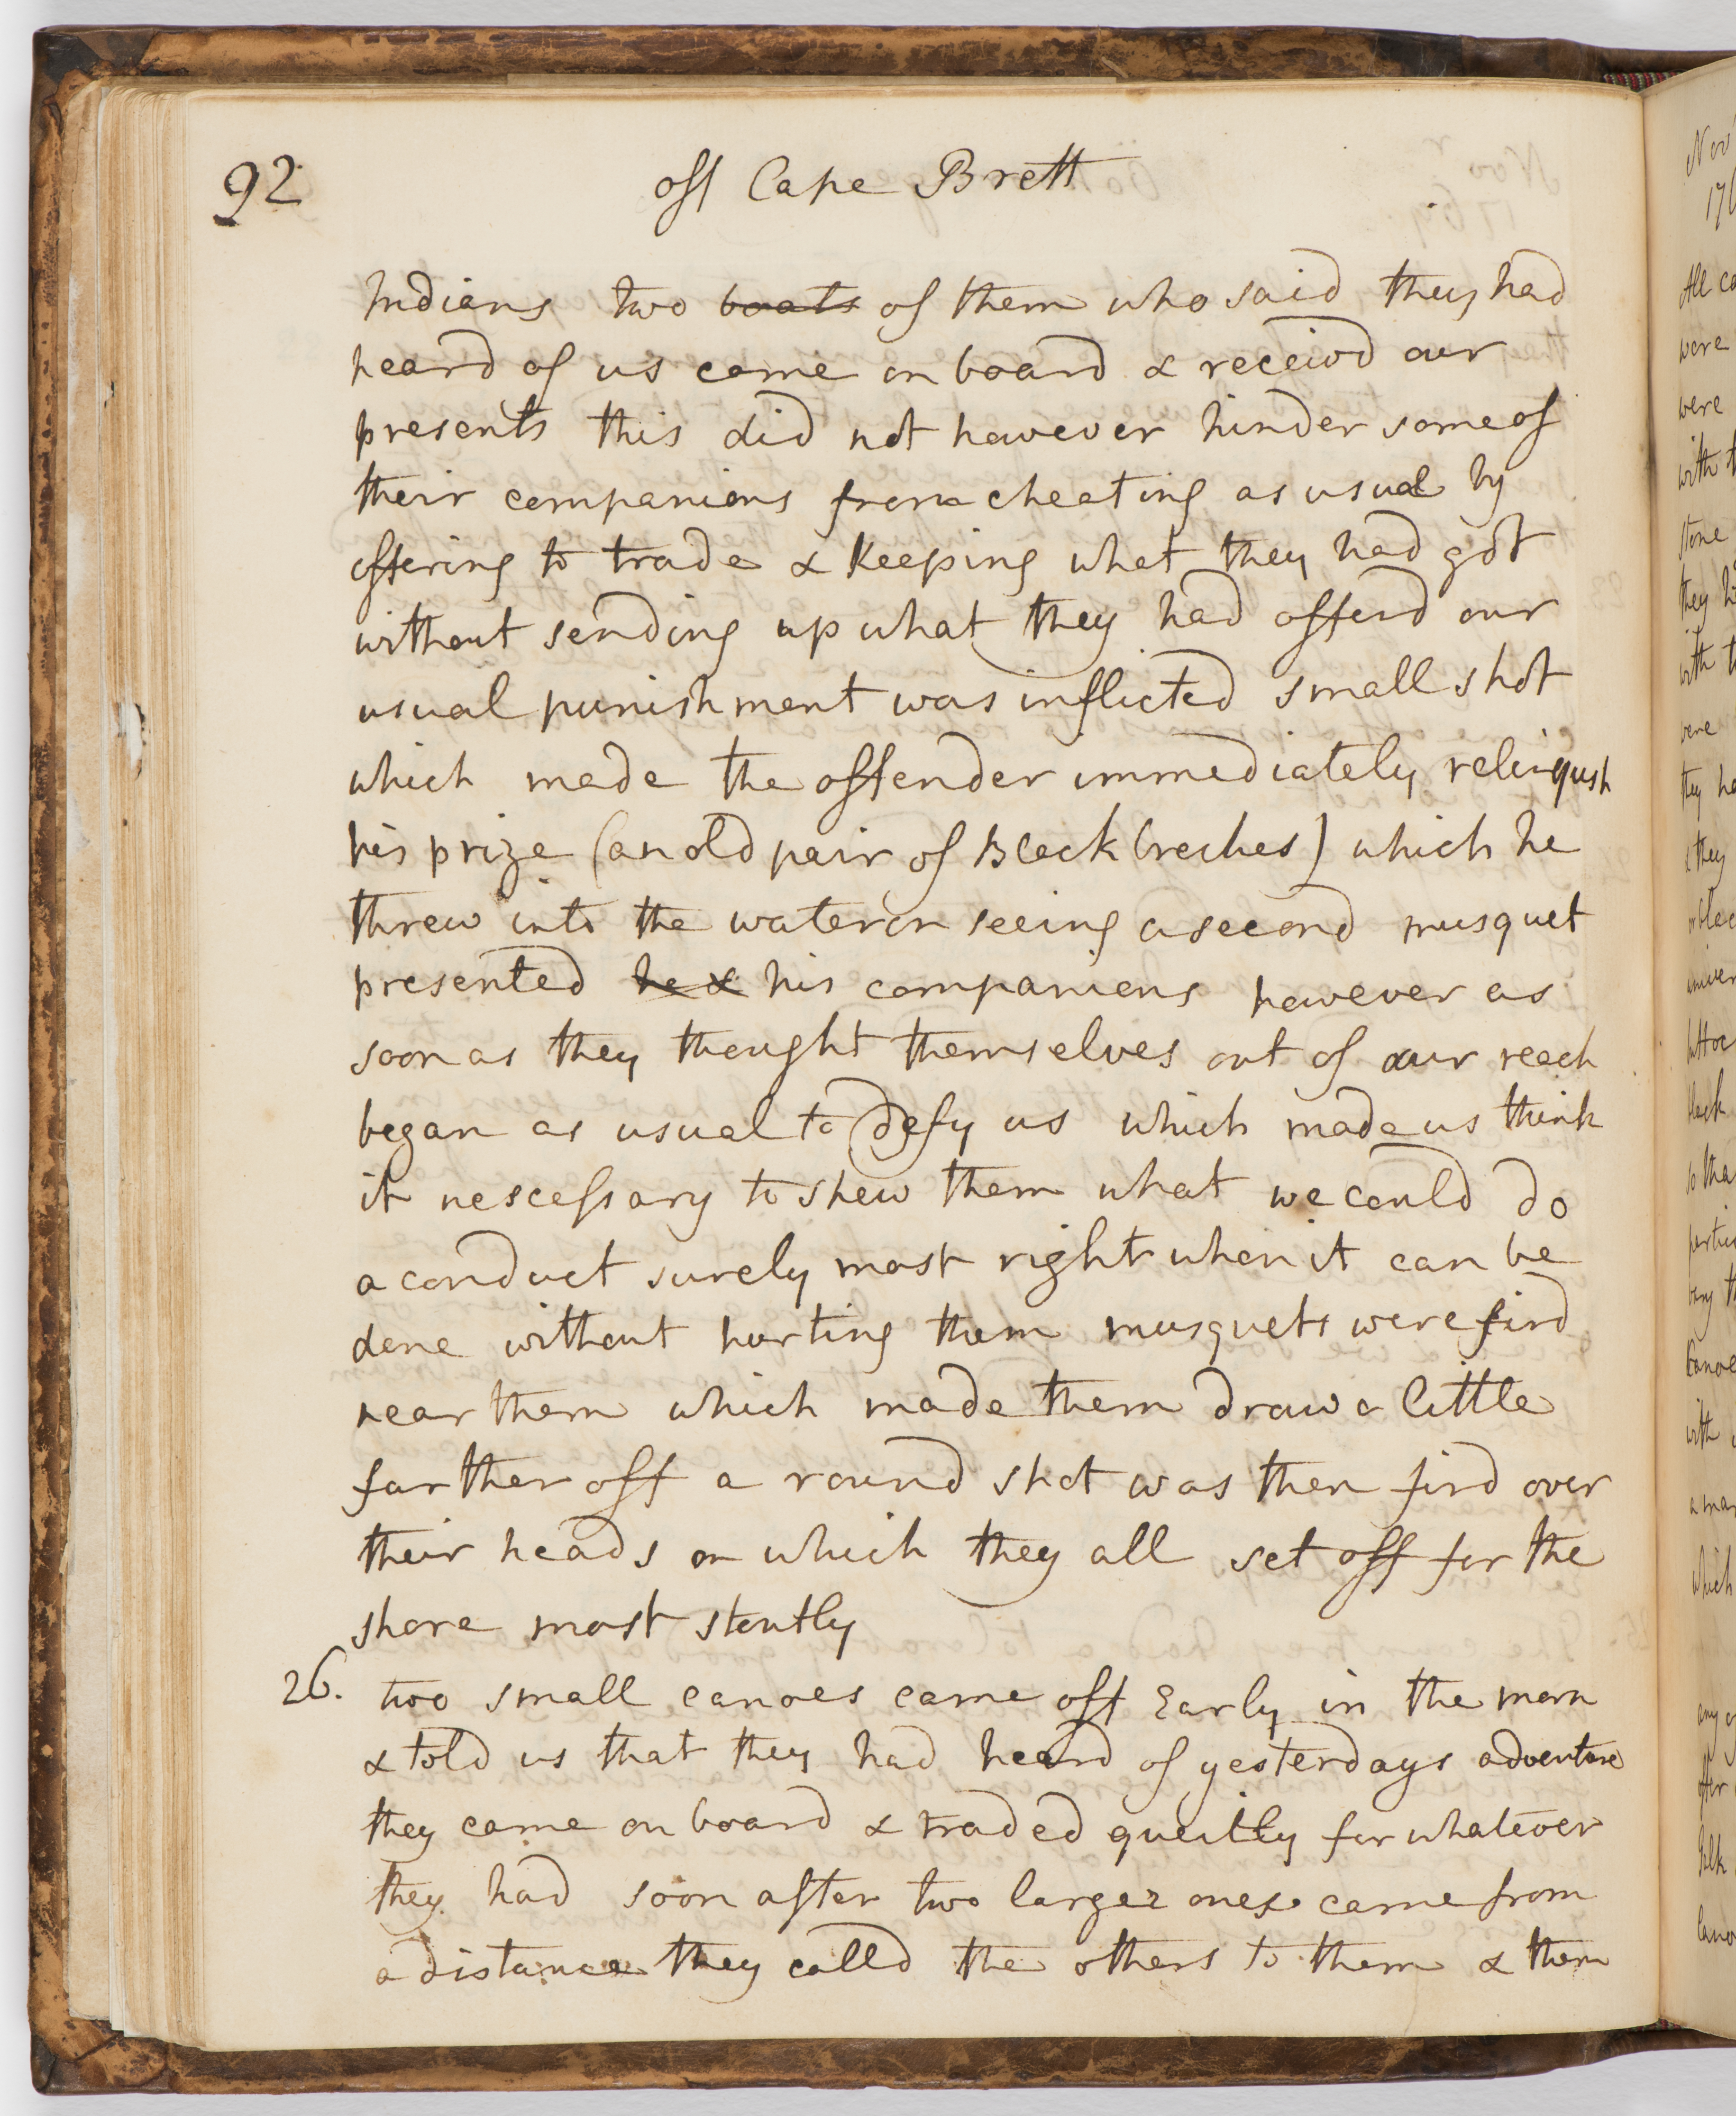 92
off Cape Brett
Indians two boats of them who said they had
heard of us came on board & receivd our
presents this did not however hinder some of
their companions from cheating as usual by
offering to trade & keeping what they had got
without sending up what they had offerd our
usual punishment was inflicted small shot
which made the offender immediately relinqush
his prize (an old pair of Black breches) which he
threw into the water on seeing a second musquet
presented he & his companions however as
soon as they thought themselves out of our reach
began as usual to defy us which made us think
it nescessary to shew them what we could do
a conduct surely most right when it can be
done without hurting them musquets were fird
near them which made them draw a little
farther off a round shot was then fird over
their heads on which they all set off for the
shore most stoutly
26. two small canoes came off Early in the morn
& told us that they had heard of yesterdays adventure
they came on board & traded queitly for whatever
they had soon after two larger ones came from
a distance they calld the others to them & them
Nov
176
All ca
were
were
with t
stone
they h
with t
were
they ha
& they
black
so tha
Canoe
with
a man
which
any